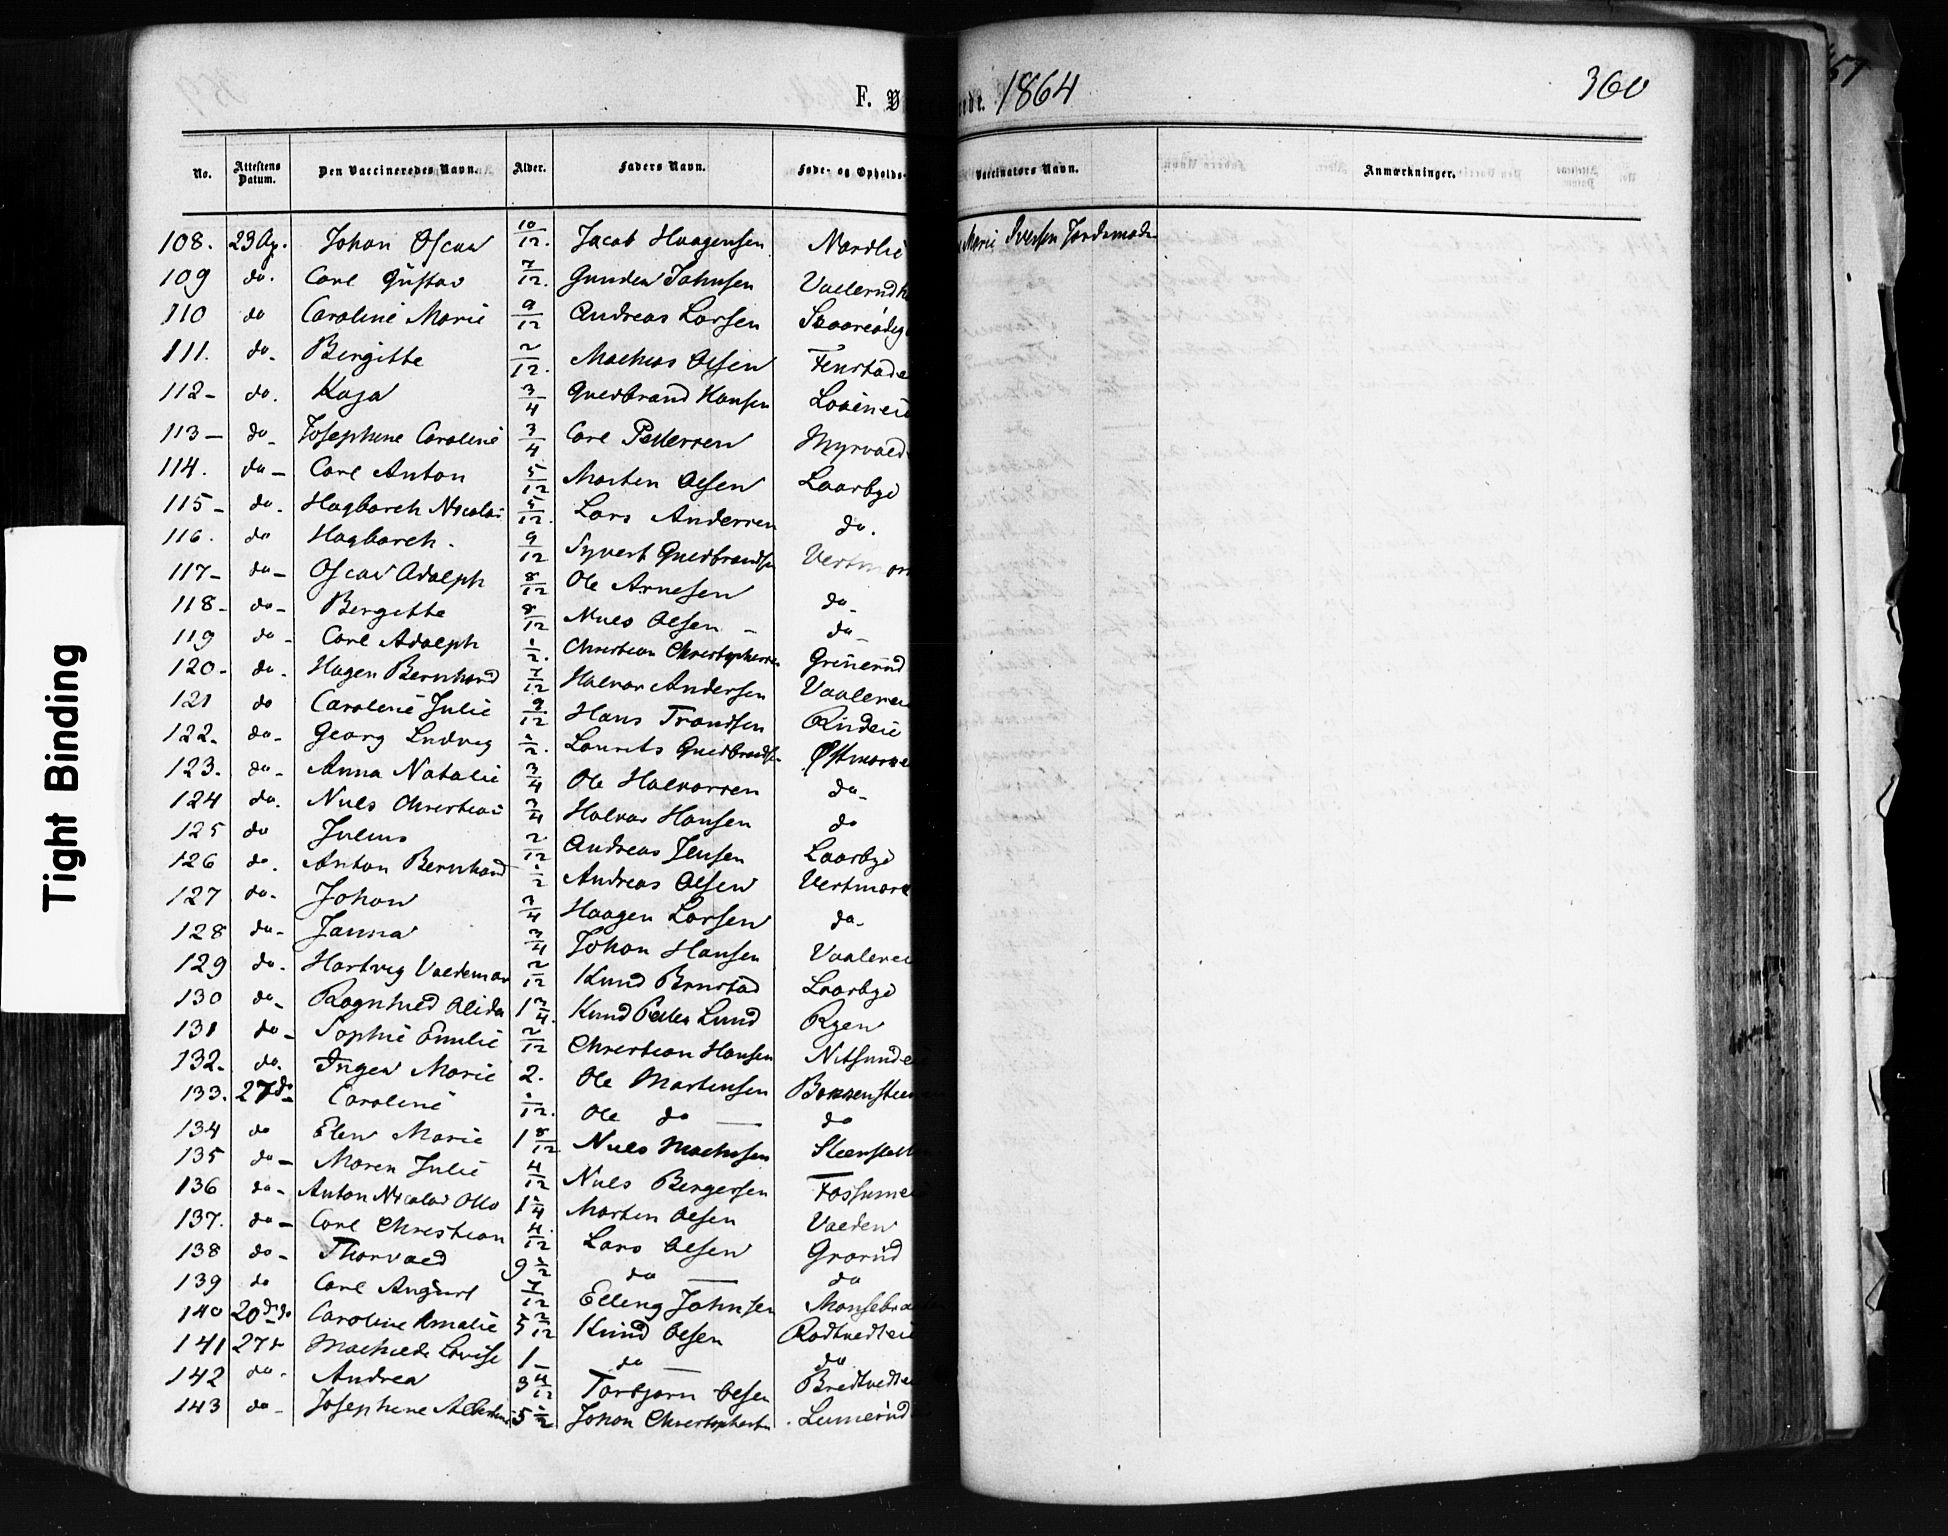 F. V
ede. 1864
360
No. Attestens Datum. Den Vaccineredes Navn. Alder. Faders Navn. Føde- og Opholds- Vaccinators Navn. Anmærkninger.
108. 23 Ap. Johan Oscar 10/12. Jacob Haagensen Nordlie Marie Iversen Jordemoder
109 do. Carl Gustav 7/12. Gunder Johnsen
110 do Caroline Marie 9/12 Andreas Larsen
111. do. Bergitte 2/12. Mathias Olsen Finstade
112- do. Kaja 3/4 Guldbrand Hansen
113- do- Josephine Caroline 3/4 Carl Pedersen Myrvold
114. do- Carl Anton 5/12 Morten Olsen Laarbye
115- do. Hagbarth Nicolai 5/12. Lars Andersen do.
116. do Hagbarth. 9/12 Syvert Guldbrandsen Vestmor
117- do- Oscar Adolph 8/12 Ole Arnesen do-
118- do- Bergitte 8/12 Niels Olsen - do-
119 do- Carl Adolph 1/2. Christian Christophersen Grinerud
120- do. Hagen Bernhard 7/12 Halvor Andersen Vaalerei
121 do Caroline Julie 9/12 Hans Trondsen Rudeie
122- do- Georg Ludvig 1/2. Laurits Guldbrandsen Østmorke
123. do- Anna Natalie 3/4 Ole Halvorsen do-
124 do. Niels Christian 3/4 Halvor Hansen do
125 do Julius 2/12 Andreas Jensen Laarbye
126 do. Anton Bernhard 1/2 Andreas Olsen Vestmork
127 do. Johan 3/4 Haagen Larsen do-
128 do- Janna 3/4 Johan Hansen Vaalerei
129 do. Hartvig Valdemar 2/12 Knud Brustad Laarbye
130 do- Ragnhild Olida 1 3/4. Knud Peder Lund Ryen
131 do- Sophie Emilie 2/12 Christian Hansen Nitsunde
132- do. Inger Marie 2. Ole Martinsen
133. 27 do- Caroline 1/12. Ole do — do
134 do Elen Marie 1 8/12 Niels Mathisen Steenslett
135 do- Maren Julie 4/12 Niels Bergersen Fossumei
136 do- Anton Nicolai Otto 1 1/4 Morten Olsen Valden
137. do- Carl Christian 4/12 Lars Olsen Grorud
138 do- Thorvald 9 1/2 do — do
139 do Carl August 7/12 Elling Johnsen
140 20 do Caroline Amalie 5 2/12 Knud Olsen Rodtvedteie
141 27 Mathilde Lovise 1- do — do
142 do. Andrea 3 4/12 Torbjørn Olsen Bredtvedtei
143 do- Josephine Albertine 5 1/2 Johan Christophersen
Tight Binding